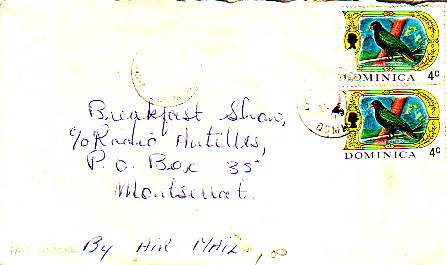 DOMINICA 4c
DOMINICA 4c
Breakfast Show,
c/o Radio Antilles,
P. O. Box 35
Montserrat.
By Air Mail.